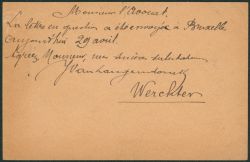 Monsieur l'Avocat.
La lettre en question a été envoyée à Bruxelles
aujourd'hui 29 août.
Agréez, Monsieur, mes sincères salutations
Werchter